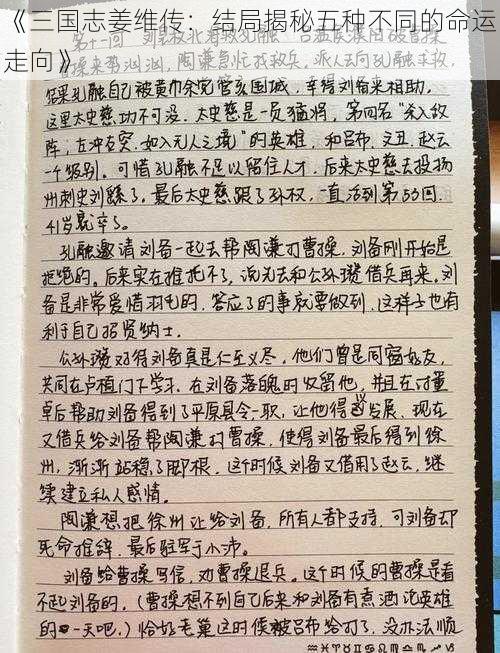 《三国志姜维传：结局揭秘五种不同的命运
走向》
第十一回 刘皇叔北海救孔融 吕温侯濮阳破曹操
结果孔融自己被黄巾余党管亥围城，幸得刘备来相助，
这里太史慈功不可没。太史慈是一员猛将，第四名“杀入敌
阵，左冲右突，如入无人之境”的英雄，和吕布、文丑、赵云
一个级别。可惜孔融不足以留住人才，后来太史慈去投扬
州刺史刘繇了，最后太史慈跟了孙权，一直活到第53回，
41岁就卒了。
孔融邀请刘备一起去帮陶谦打曹操，刘备刚开始是
拒绝的。后来实在推托不了，说先去和公孙瓒借兵再来。刘
备是非常爱惜羽毛的，答应了的事就要做到，这样子也有
利于自己招贤纳士。
公孙瓒对待刘备真是仁至义尽，他们曾是同窗好友，
共同在卢植门下学习，在刘备落魄时收留他，并且在讨董
卓后帮助刘备得到了平原县令一职，让他得以发展，现在
又借兵给刘备帮陶谦打曹操，使得刘备最后得到徐
州，渐渐站稳了脚根，这个时候刘备又借用了赵云，继
续建立私人感情。
陶谦想把徐州让给刘备，所有人都支持，可刘备却
死命推辞，最后驻军于小沛。
刘备给曹操写信，劝曹操退兵。这个时候的曹操是看
不起刘备的，（曹操想不到自己后来和刘备有煮酒论英雄
的一天吧，）恰好老巢这时候被吕布给打了，没办法顺